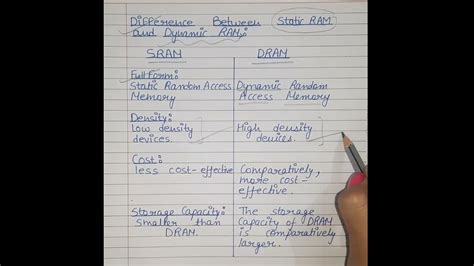 Difference Between Static RAM
and Dynamic RAM:
SRAM DRAM
Full Form:
Static Random Access Dynamic Random
Memory Access Memory
Density:
Low density High density
devices. devices.
Cost:
less cost-effective Comparatively,
more cost-
effective.
Storage Capacity: The storage
smaller than Capacity of DRAM
DRAM. is comparatively
larger.